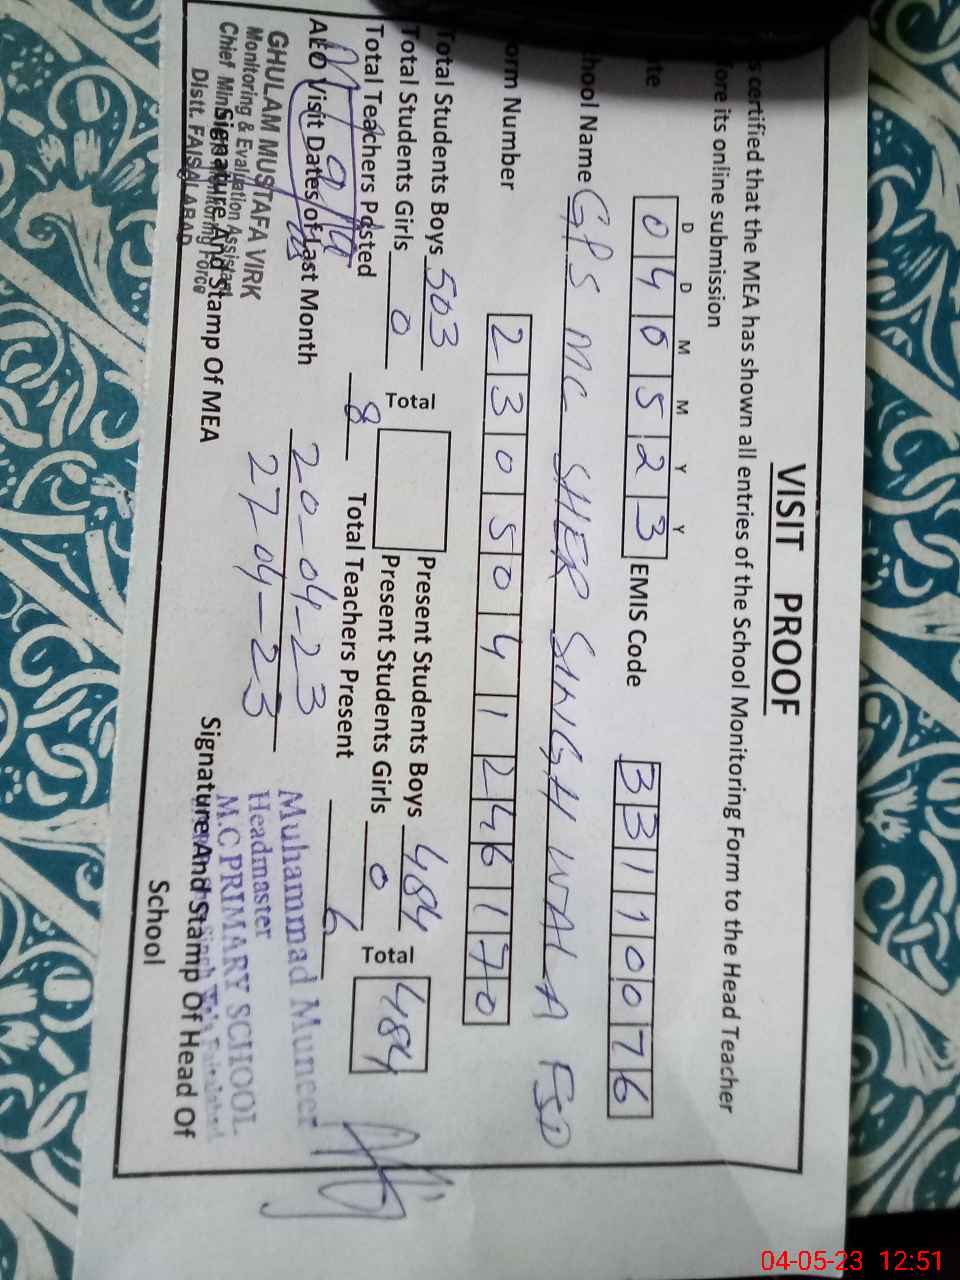 VISIT PROOF
s certified that the MEA has shown all entries of the School Monitoring Form to the Head Teacher
ore its online submission
D D M M Y Y
te 0 4 0 5 2 3 EMIS Code 3 3 1 1 0 0 7 6
hool Name GPS MC SHER SINGH WALA FSD
orm Number 2 3 0 5 0 4 1 2 4 6 1 7 0
Total Students Boys 503 Total Present Students Boys 484 Total 484
Total Students Girls 0 Present Students Girls 0
Total Teachers Posted 8 Total Teachers Present 6
AEO Visit Dates of Last Month 20-04-23
27-04-23
GHULAM MUSTAFA VIRK
Monitoring & Evaluation Assistant
Chief Monitoring Force
Distt. FAISALABAD
Signature And Stamp Of MEA
Muhammad Muneer
Headmaster
M.C PRIMARY SCHOOL
Signature And Stamp Of Head Of
School
04-05-23 12:51